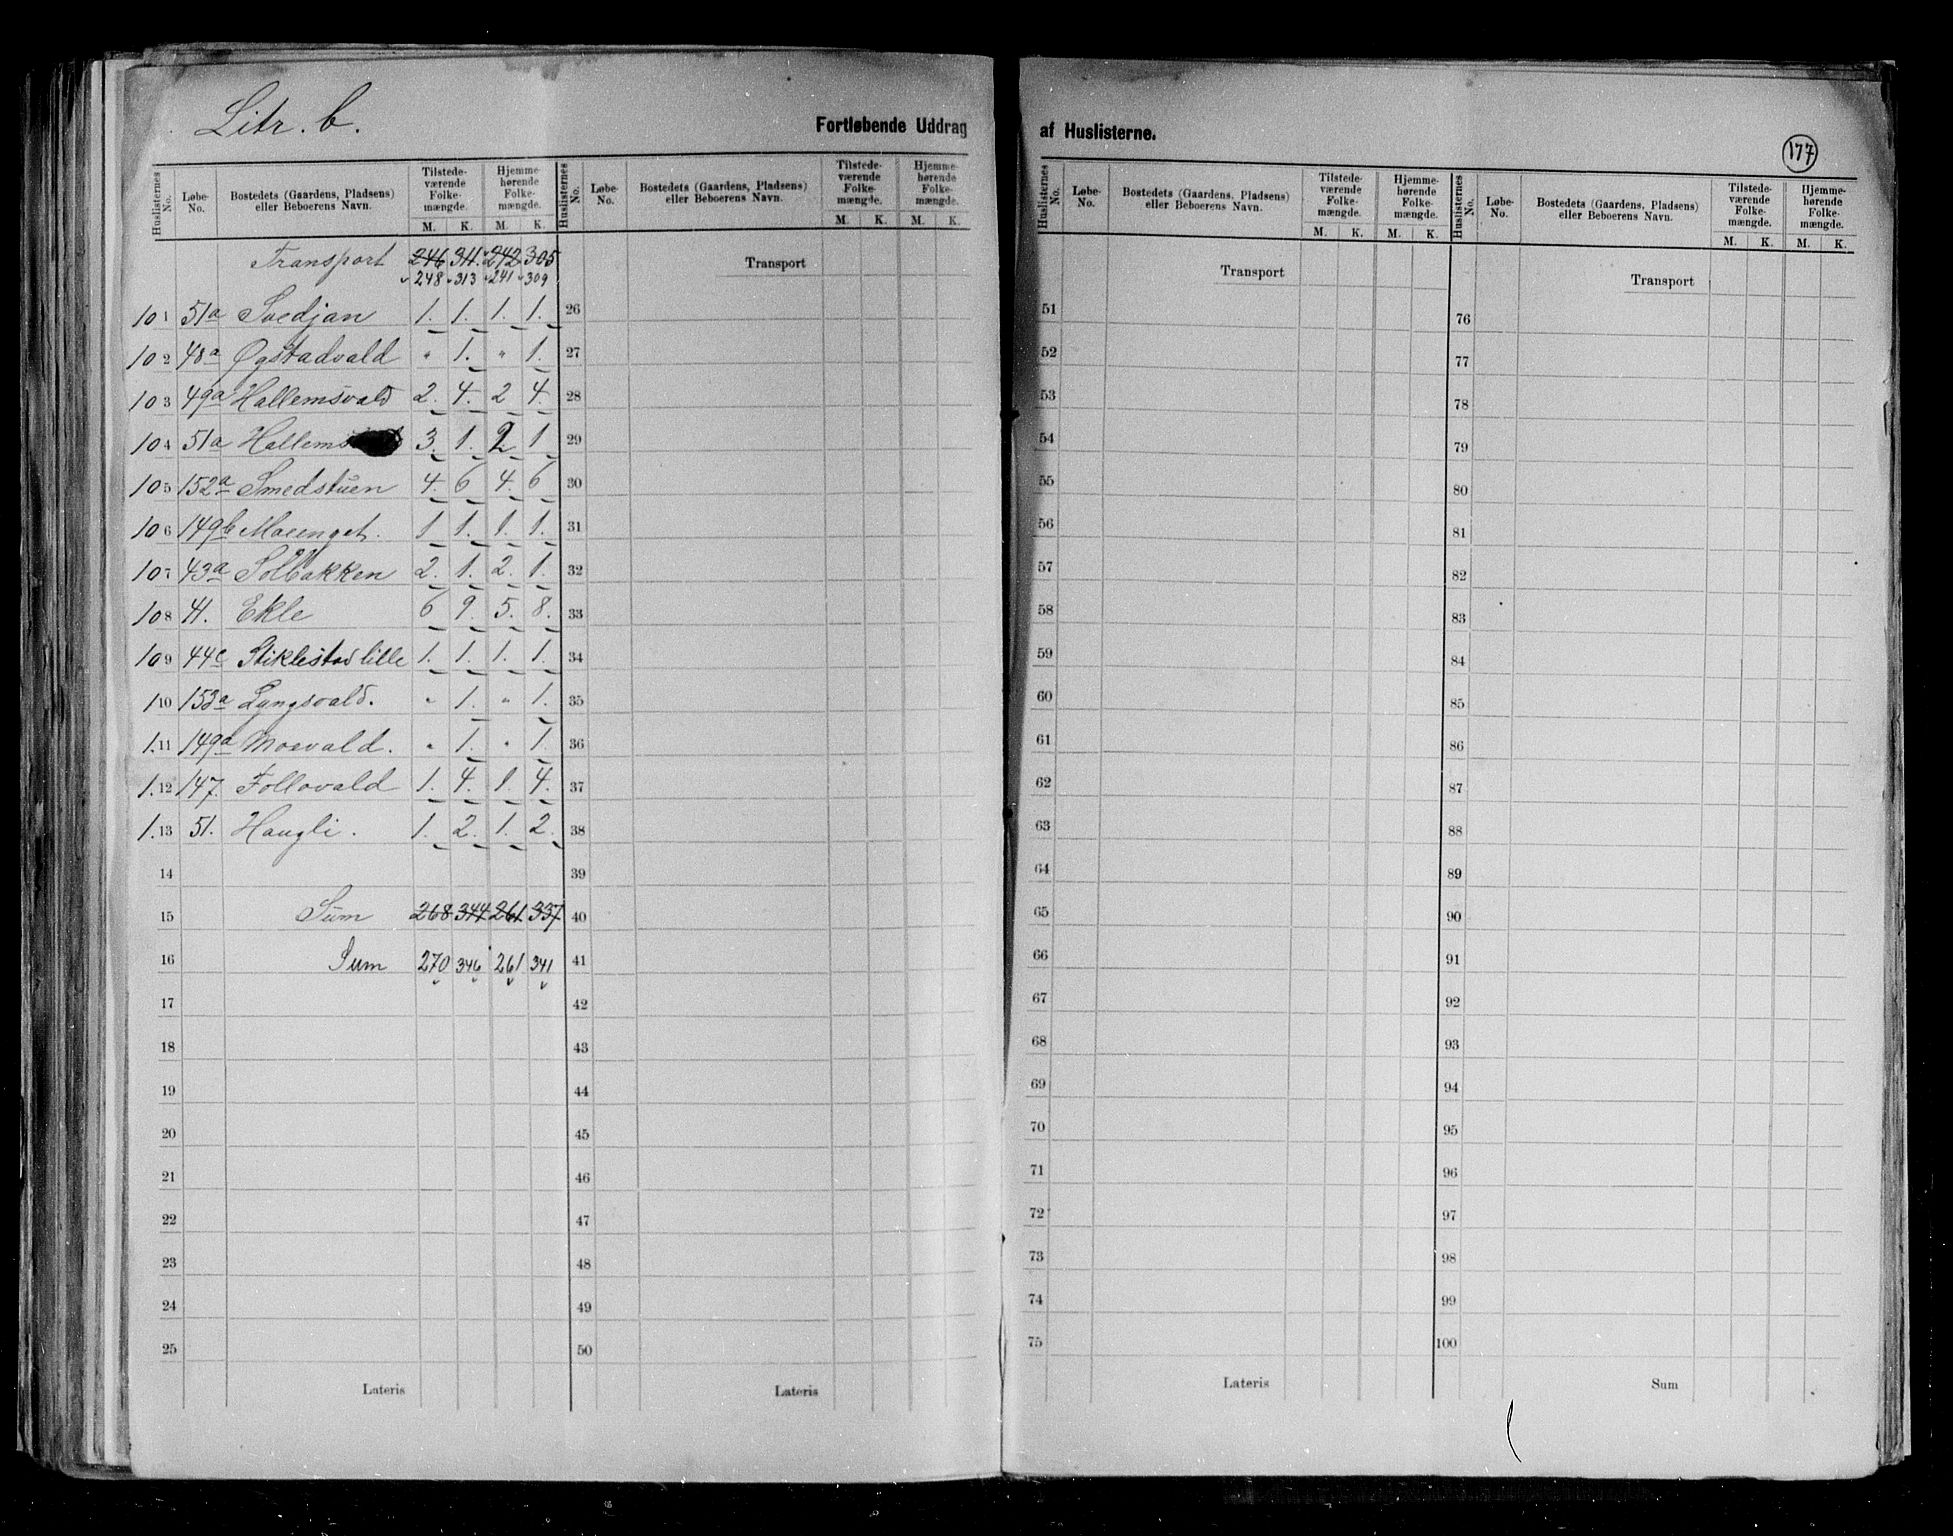 Litr. b.
Fortløbende Uddrag af Huslisterne.
177
Huslisternes No. Løbe-No. Bostedets (Gaardens, Pladsens) eller Beboerens Navn. Tilstedeværende Folkemængde. M. K. Hjemmehørende Folkemængde. M. K.
Transport 246 311. 242 305
248 313 241 309
101 51a Svedjan 1. 1. 1. 1.
102 48a Øgstadvald " 1. " 1.
103 49a Hallemsvald 2. 4. 2 4.
104 51a Hallem 3. 1. 2 1
105 152a Smedstuen 4. 6 4. 6
106 149b Moeenget. 1 1. 1. 1.
107 43a Solbakken 2. 1. 2. 1.
108 41. Ekle 6 9. 5. 8.
109 44c Stiklestad lille 1. 1. 1. 1.
110 153a Lyngsvald. " 1. " 1.
1.11 149a Moevald. " 1. " 1.
1.12 147. Follovald 1. 4. 1. 4.
1.13 51. Haugli. 1. 2. 1. 2.
14
15 Sum 268 344 261 337
16 Sum 270 346 261 341
17
18
19
20
21
22
23
24
25
Lateris
Huslisternes No. Løbe-No. Bostedets (Gaardens, Pladsens) eller Beboerens Navn. Tilstedeværende Folkemængde. M. K. Hjemmehørende Folkemængde. M. K.
Transport
26
27
28
29
30
31
32
33
34
35
36
37
38
39
40
41
42
43
44
45
46
47
48
49
50
Lateris
Huslisternes No. Løbe-No. Bostedets (Gaardens, Pladsens) eller Beboerens Navn. Tilstedeværende Folkemængde. M. K. Hjemmehørende Folkemængde. M. K.
Transport
51
52
53
54
55
56
57
58
59
60
61
62
63
64
65
66
67
68
69
70
71
72
73
74
75
Lateris
Huslisternes No. Løbe-No. Bostedets (Gaardens, Pladsens) eller Beboerens Navn. Tilstedeværende Folkemængde. M. K. Hjemmehørende Folkemængde. M. K.
Transport
76
77
78
79
80
81
82
83
84
85
86
87
88
89
90
91
92
93
94
95
96
97
98
99
100
Sum